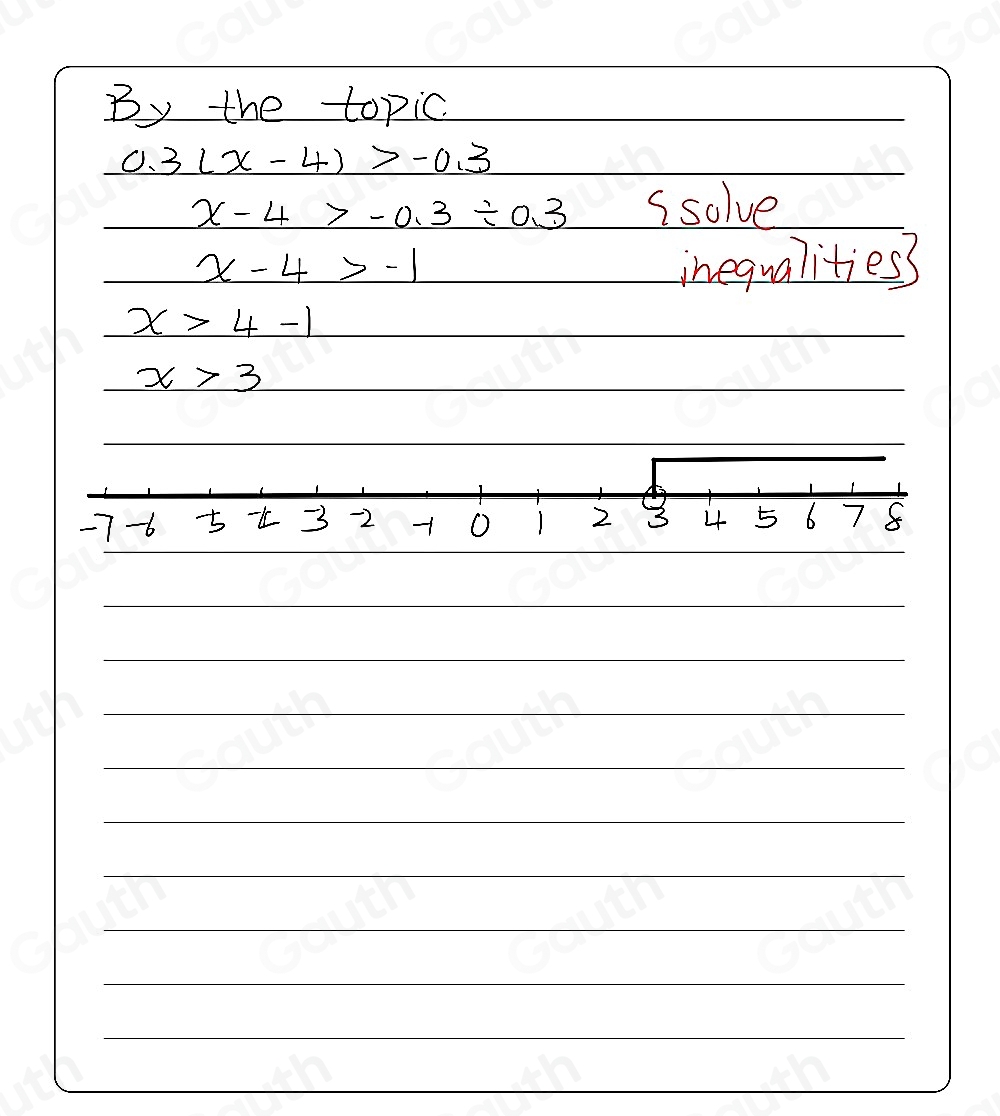 By the topic
0.3(x-4) > -0.3
x-4 > -0.3 ÷ 0.3
{solve
x-4 > -1
inequalities}
x > 4-1
x > 3
-7 -6 -5 -4 -3 -2 -1 0 1 2 3 4 5 6 7 8
Gauth